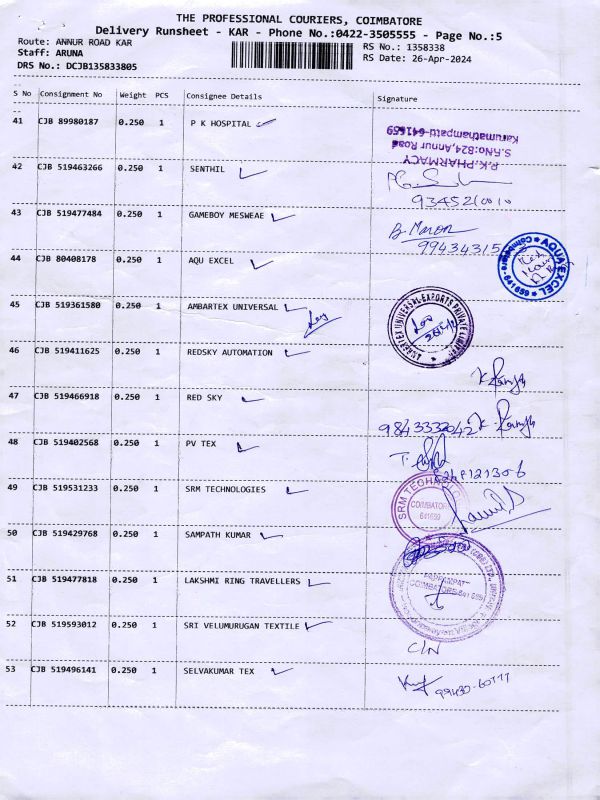 THE PROFESSIONAL COURIERS, COIMBATORE
Delivery Runsheet - KAR - Phone No.:0422-3505555 - Page No.:5
Route: ANNUR ROAD KAR
RS No.: 1358338
Staff: ARUNA
RS Date: 26-Apr-2024
DRS No.: DCJB135833805
S No Consignment No Weight PCS Consignee Details Signature
41 CJB 89980187 0.250 1 P K HOSPITAL
P.K. PHARMACY
S.F.No:824,Annur Road
Karumathampatti-641659
42 CJB 519463266 0.250 1 SENTHIL
43 CJB 519477484 0.250 1 GAMEBOY MESWEAE
44 CJB 80408178 0.250 1 AQU EXCEL
AQUA EXCEL
Coimbatore-641659
45 CJB 519361580 0.250 1 AMBARTEX UNIVERSAL
AMBARTEX UNIVERSAL EXPORTS PRIVATE LIMITED
46 CJB 519411625 0.250 1 REDSKY AUTOMATION
47 CJB 519466918 0.250 1 RED SKY
48 CJB 519402568 0.250 1 PV TEX
49 CJB 519531233 0.250 1 SRM TECHNOLOGIES
COIMBATORE
641659
50 CJB 519429768 0.250 1 SAMPATH KUMAR
51 CJB 519477818 0.250 1 LAKSHMI RING TRAVELLERS
COIMBATORE-641 659
52 CJB 519593012 0.250 1 SRI VELUMURUGAN TEXTILE
53 CJB 519496141 0.250 1 SELVAKUMAR TEX